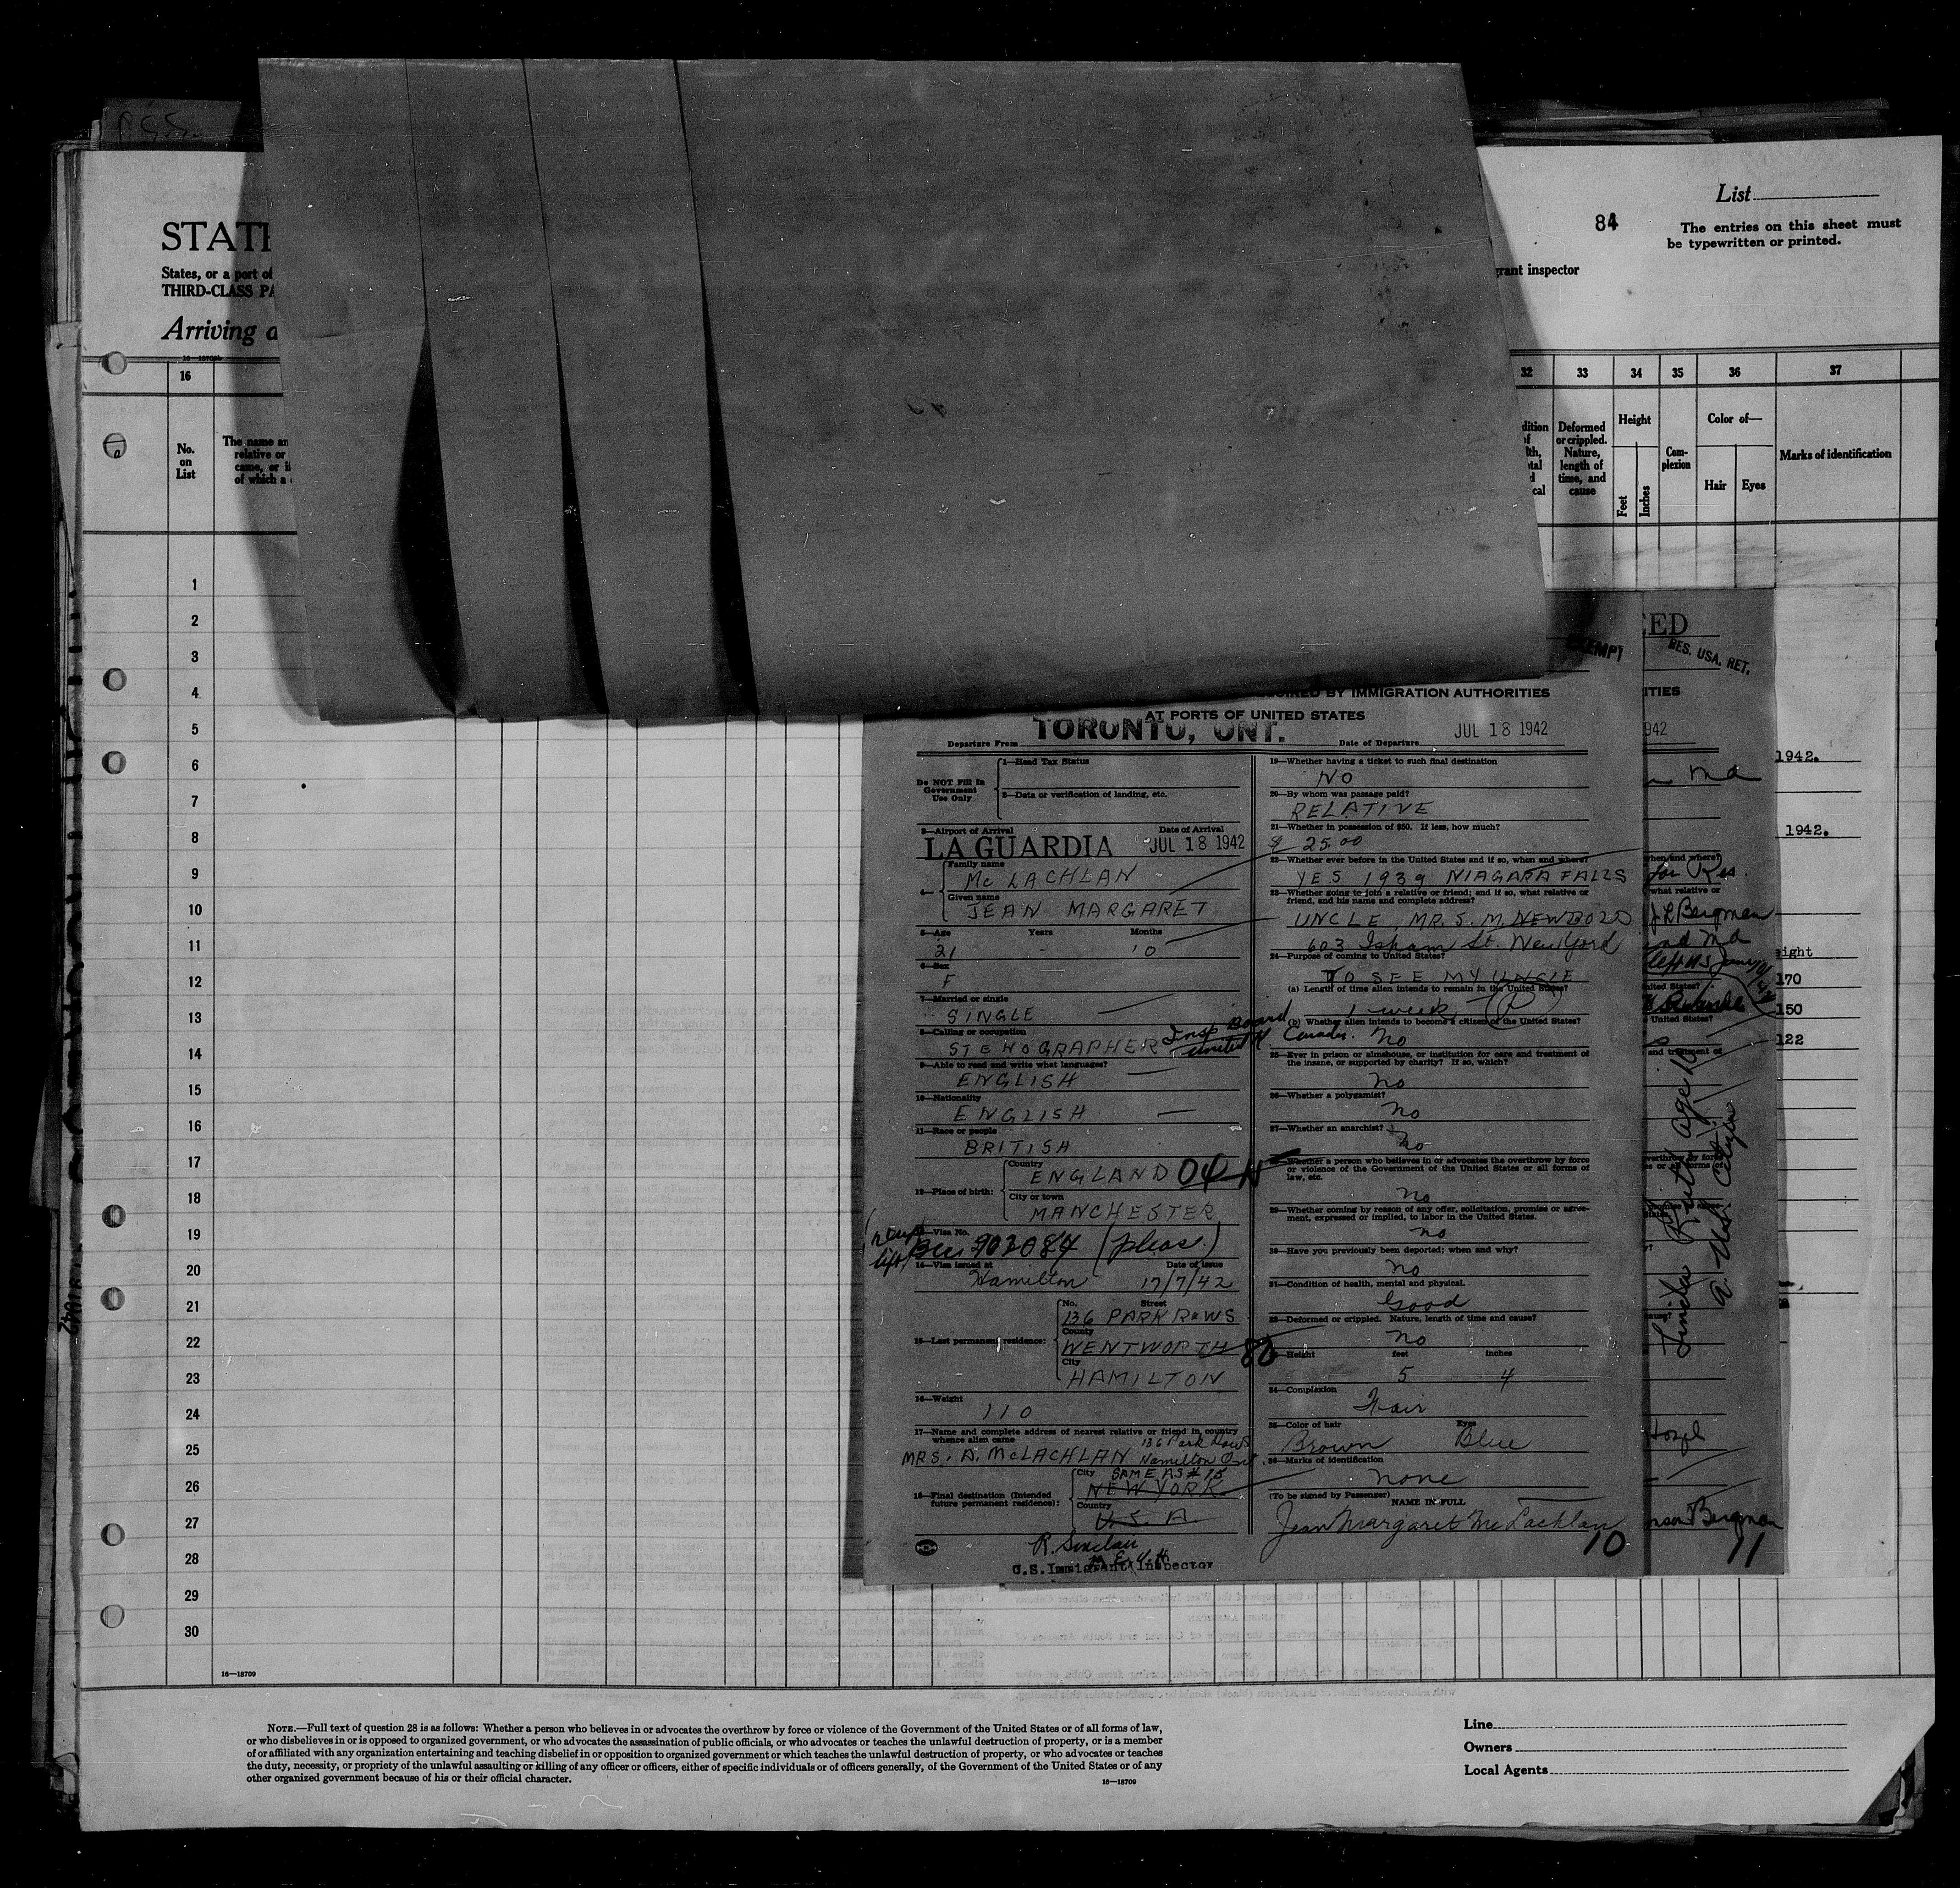 O.S.S.
STATE
States, or a port of
THIRD-CLASS PA
Arriving a
84
List
The entries on this sheet must
be typewritten or printed.
grant inspector
16 32 33 34 35 36 37
No.
on
List
The name an
relative or
came, or i
of which a
dition
of
lth,
ntal
d
cal
Deformed
or crippled.
Nature,
length of
time, and
cause
Height
Feet
Inches
Com-
plexion
Color of—
Hair Eyes
Marks of identification
1
2
3
4
5
6
7
8
9
10
11
12
13
14
15
16
17
18
19
20
21
22
23
24
25
26
27
28
29
30
16—18709
EXEMPT
UIRED BY IMMIGRATION AUTHORITIES
AT PORTS OF UNITED STATES
Departure From TORONTO, ONT. Date of Departure JUL 18 1942
Do NOT Fill In
Government
Use Only
1—Head Tax Status
2—Data or verification of landing, etc.
3—Airport of Arrival Date of Arrival
LA GUARDIA JUL 18 1942
4—
Family name
Mc LACHLAN
Given name
JEAN MARGARET
5—Age Years Months
21 - 10
6—Sex
F
7—Married or single
SINGLE
8—Calling or occupation
STENOGRAPHER Insp Board
United K. Canada.
9—Able to read and write what languages?
ENGLISH
10—Nationality
ENGLISH
11—Race or people
BRITISH
12—Place of birth:
Country
ENGLAND 04
City or town
MANCHESTER
13—Visa No.
903084 (pleas.)
14—Visa issued at Date of issue
Hamilton 17/7/42
15—Last permanent residence:
No. Street
136 PARK ROW S
County
WENTWORTH 80
City
HAMILTON
16—Weight
110
17—Name and complete address of nearest relative or friend in country
whence alien came 136 Park Row S
MRS. A. McLACHLAN Hamilton Ont.
18—Final destination (Intended
future permanent residence):
City SAME AS # 15
NEW YORK
Country
U.S.A.
R. Sinclair
U.S. Immigrant Inspector
19—Whether having a ticket to such final destination
NO
20—By whom was passage paid?
RELATIVE
21—Whether in possession of $50. If less, how much?
$ 25.00
22—Whether ever before in the United States and if so, when and where?
YES 1939 NIAGARA FALLS
23—Whether going to join a relative or friend; and if so, what relative or
friend, and his name and complete address?
UNCLE, MR. S. M. NEWBOLD
603 Isham St. New York
24—Purpose of coming to United States?
TO SEE MY UNCLE
(a) Length of time alien intends to remain in the United States?
1 week (P)
(b) Whether alien intends to become a citizen of the United States?
No
25—Ever in prison or almshouse, or institution for care and treatment of
the insane, or supported by charity? If so, which?
No
26—Whether a polygamist?
No
27—Whether an anarchist?
No
28—Whether a person who believes in or advocates the overthrow by force
or violence of the Government of the United States or all forms of
law, etc.
No
29—Whether coming by reason of any offer, solicitation, promise or agree-
ment, expressed or implied, to labor in the United States.
No
30—Have you previously been deported; when and why?
No
31—Condition of health, mental and physical.
Good
32—Deformed or crippled. Nature, length of time and cause?
No
33—Height feet inches
5 4
34—Complexion
Fair
35—Color of hair Eyes
Brown Blue
36—Marks of identification
None
(To be signed by Passenger)
NAME IN FULL
Jean Margaret McLachlan
10
EED
RES. USA. RET.
ITIES
942
Md
when and where?
for Res.
what relative or
J L Bergman
and Md
United States?
United States?
and treatment of
Ruth age
a US Citizen
Linda
Hazel
Bergman
11
1942.
1942.
eight
170
150
122
NOTE.—Full text of question 28 is as follows: Whether a person who believes in or advocates the overthrow by force or violence of the Government of the United States or of all forms of law,
or who disbelieves in or is opposed to organized government, or who advocates the assassination of public officials, or who advocates or teaches the unlawful destruction of property, or is a member
of or affiliated with any organization entertaining and teaching disbelief in or opposition to organized government or which teaches the unlawful destruction of property, or who advocates or teaches
the duty, necessity, or propriety of the unlawful assaulting or killing of any officer or officers, either of specific individuals or of officers generally, of the Government of the United States or of any
other organized government because of his or their official character.
16—18709
Line
Owners
Local Agents